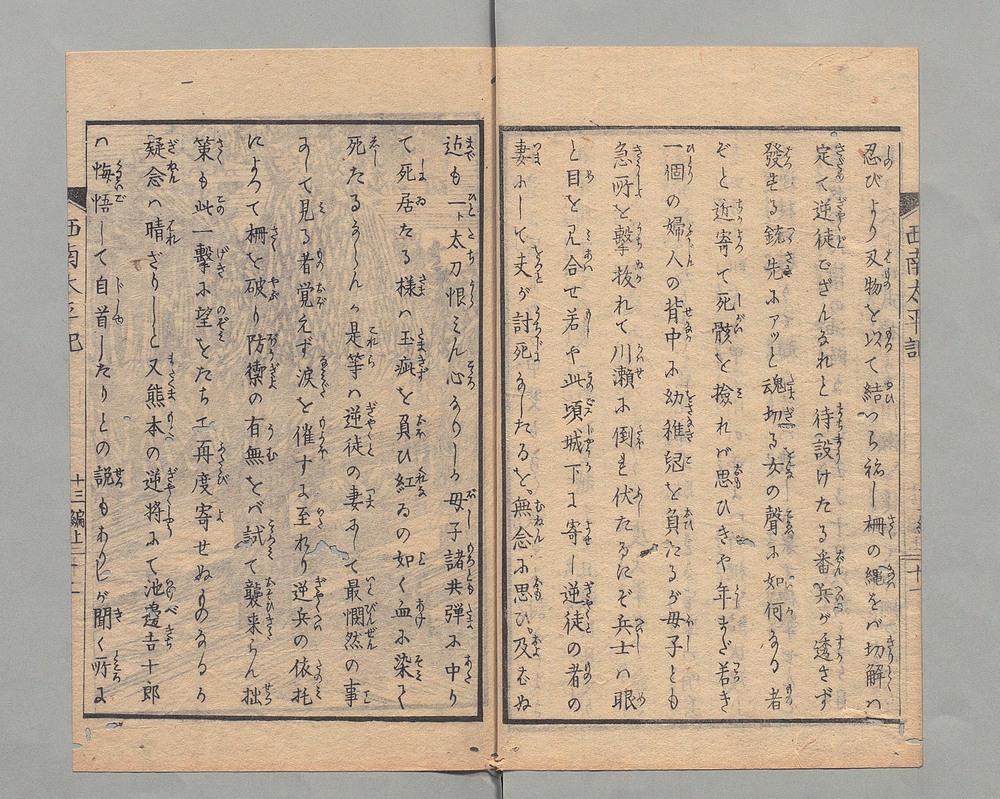 忍びより刃物を以て結いち紛し柵の縄をバ切解ハ
定て逆徒でざんなれと待設けたる番兵が透さず
發せる銃先にアッと魂切る女の聲に如何なる者
ぞと近寄て死骸を撿れバ思ひきや年まだ若き
一個の婦人の背中に幼稚兒を負たるが母子とも
急所を擊抜れて川瀬に倒れ伏たるにぞ兵士ハ眼
と目を見合せ若や此頃城下に寄し逆徒の者の
妻にして夫が討死なしたるを無念に思ひ及ばぬ
迠も一ト太刀恨ミん心なりしか母子諸共弾に中り
て死居たる様ハ玉疵を負ひ紅ゐの如く血に染て
死たるならんか是等ハ逆徒の妻にして最憫然の事
にして見る者覚えず涙を催すに至れり逆兵の依托
によつて柵を破り防禦の有無をバ試て襲来らん拙
策も此一擊に望をたち工再度寄せぬものなるか
疑念ハ晴ざりしと又熊本の逆將にて池邉吉十郎
ハ悔悟して自首したりとの説もありしが聞く所に
西南太平記
十三編上
西南太平記